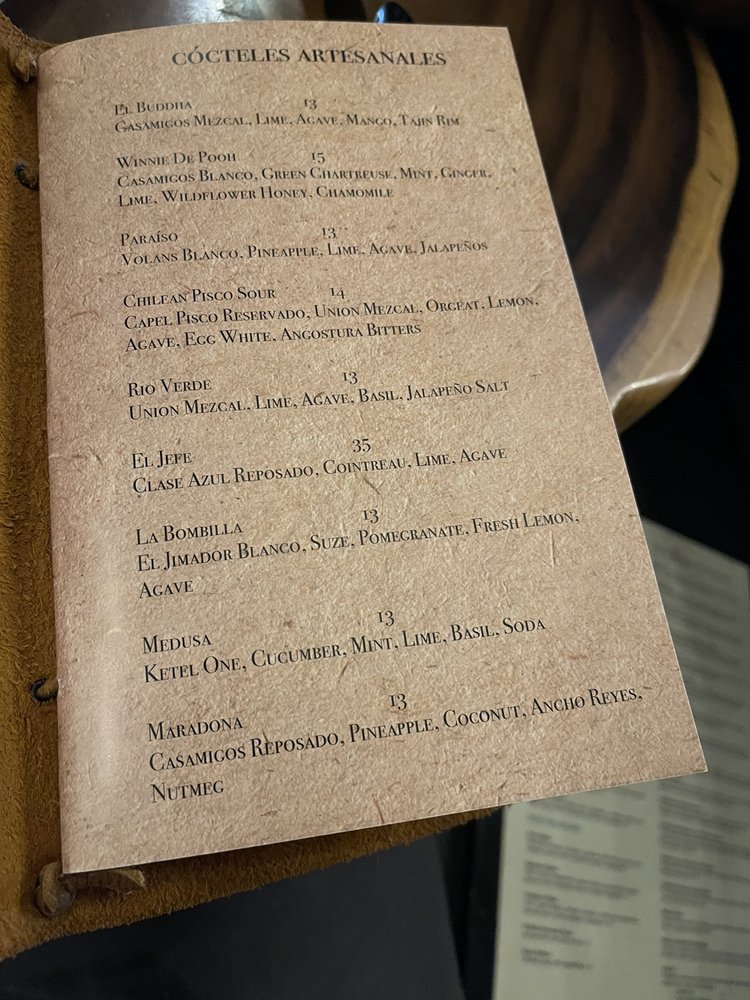 CÓCTELES ARTESANALES
EL BUDDHA 13
CASAMIGOS MEZCAL, LIME, AGAVE, MANGO, TAJIN RIM
WINNIE DE POOH 15
CASAMIGOS BLANCO, GREEN CHARTREUSE, MINT, GINGER,
LIME, WILDFLOWER HONEY, CHAMOMILE
PARAÍSO 13
VOLANS BLANCO, PINEAPPLE, LIME, AGAVE, JALAPEÑOS
CHILEAN PISCO SOUR 14
CAPEL PISCO RESERVADO, UNION MEZCAL, ORGEAT, LEMON,
AGAVE, EGG WHITE, ANGOSTURA BITTERS
RIO VERDE 13
UNION MEZCAL, LIME, AGAVE, BASIL, JALAPEÑO SALT
EL JEFE 35
CLASE AZUL REPOSADO, COINTREAU, LIME, AGAVE
LA BOMBILLA 13
EL JIMADOR BLANCO, SUZE, POMEGRANATE, FRESH LEMON,
AGAVE
MEDUSA 13
KETEL ONE, CUCUMBER, MINT, LIME, BASIL, SODA
MARADONA 13
CASAMIGOS REPOSADO, PINEAPPLE, COCONUT, ANCHO REYES,
NUTMEG